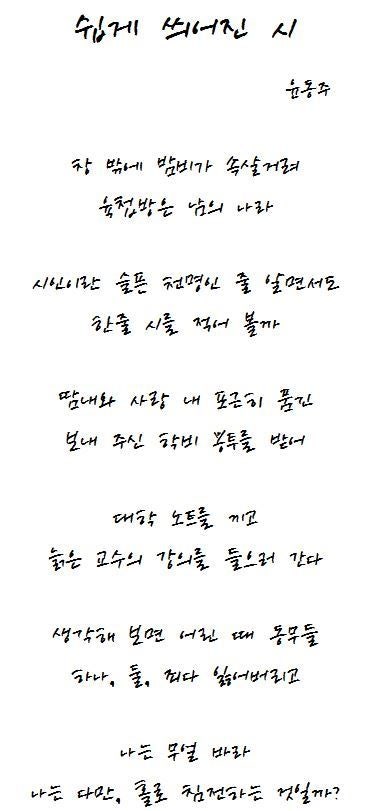 쉽게 씌어진 시
윤동주
창 밖에 밤비가 속살거려
육첩방은 남의 나라
시인이란 슬픈 천명인 줄 알면서도
한줄 시를 적어 볼까
땀내와 사랑 내 포근히 품긴
보내 주신 학비 봉투를 받어
대학 노트를 끼고
늙은 교수의 강의를 들으러 간다
생각해 보면 어린 때 동무들
하나, 둘, 죄다 잃어버리고
나는 무얼 바라
나는 다만, 홀로 침전하는 것일까?